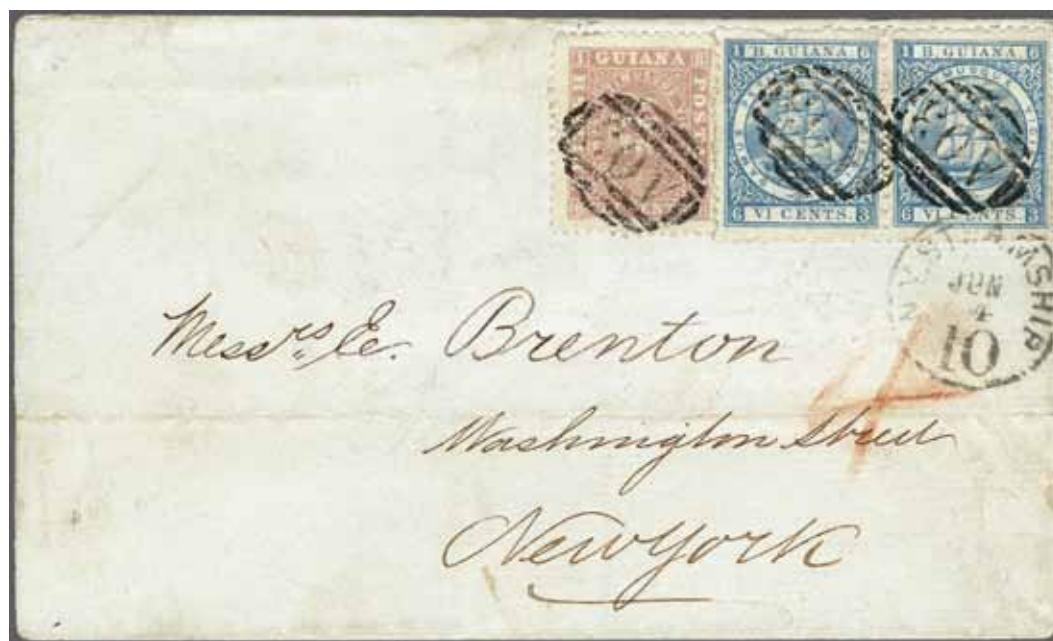 GUIANA
POS
1 B. GUIANA 6
VI CENTS.
6 3
1 B. GUIANA 6
VI CENTS.
6 3
A03
A03
N.Y. STEAMSHIP
JUN
4
10
4
Messrs. E. Brenton
Washington Street
New York